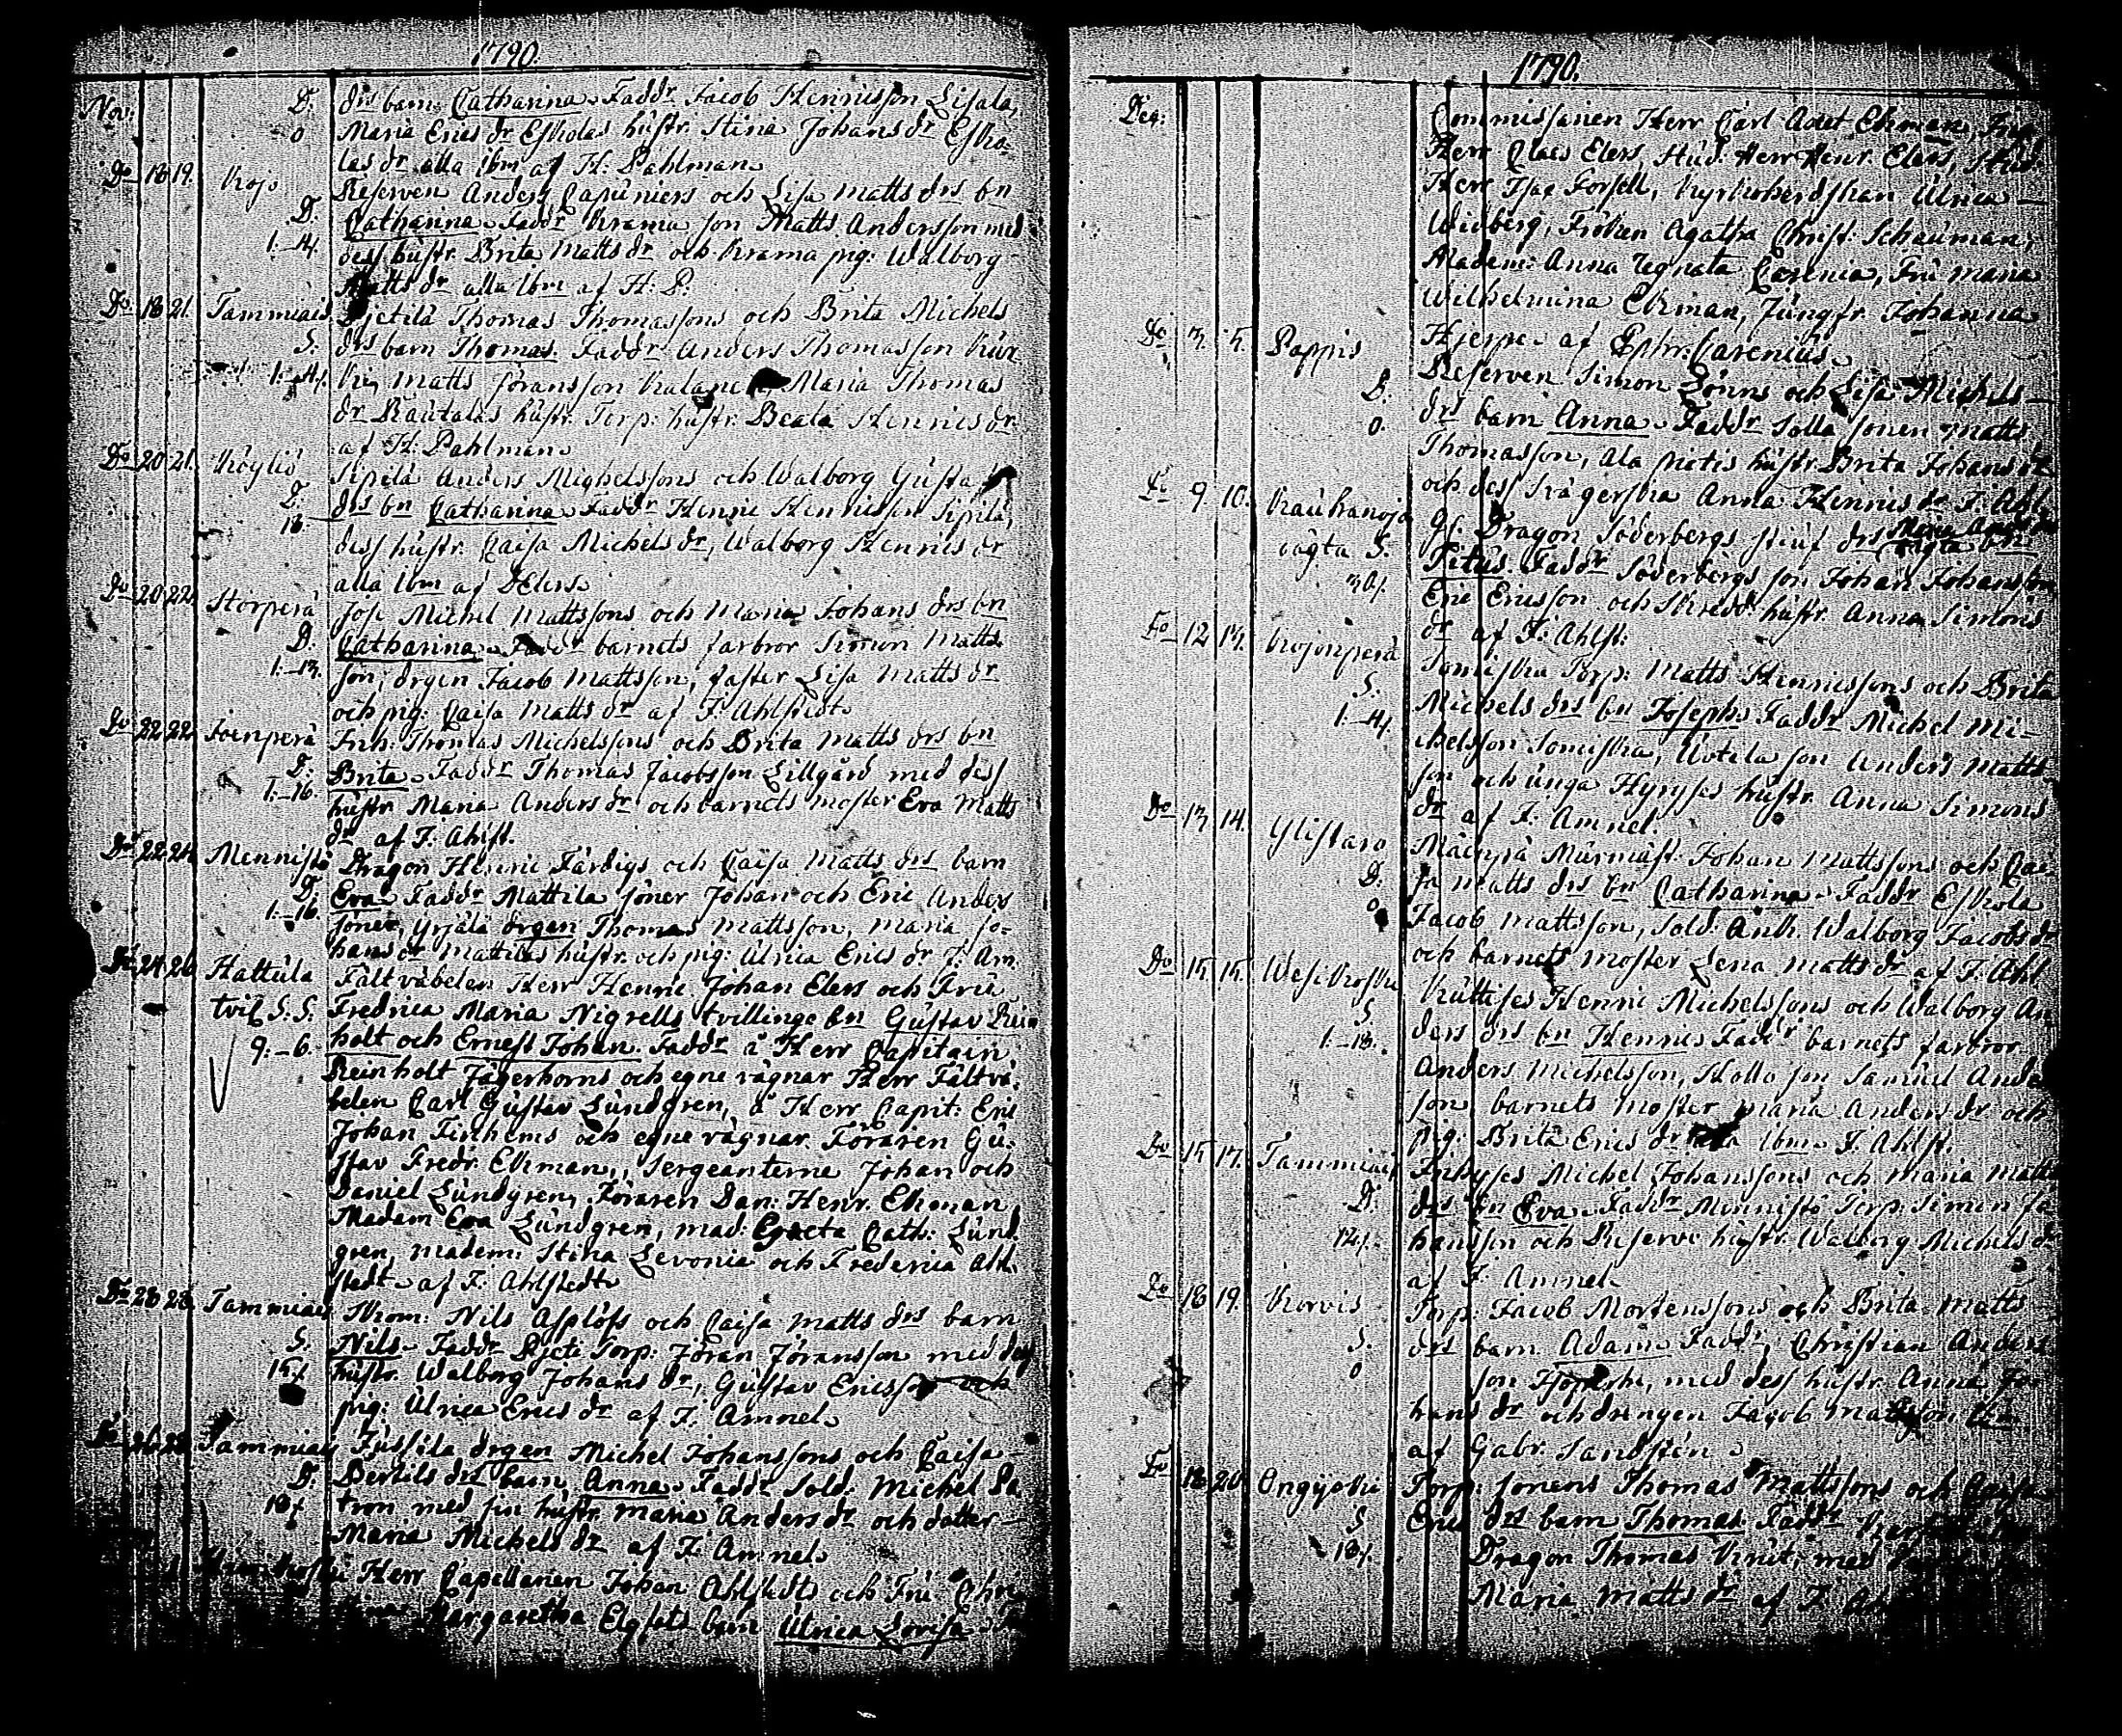 1790.
Nov:
D. drs barn Catharina. Faddr Jacob Henricsson Lisala,
0 Maria Erics dr Eskolas hustr. Stina Johans dr Esko-
las dr alla ibm af H. Pahlman.
Do 18 19. Kojo Reserven Anders Capuniers och Lisa Matts drs bn
D. Catharina. Faddr Krama son Matts Andersson med
1.-14. dess hustr. Brita Matts dr och Krama pig: Walborg
Matts dr alla ibm af H. P.
Do 18 21. Tammiais Pjetilä Thomas Thomassons och Brita Michels
S. drs barn Thomas. Faddr Anders Thomasson
1.-4. Matts Jöransson Maria Thomas
dr Rautalas hustr. Torp: hustr. Beata Henrics dr
af H. Pahlman.
Do 20 21. Köyliö Sipilä Anders Michelssons och Walborg Gustafs
D. drs bn Catharina. Faddr Henric Henricsson Sipilä,
18 dess hustr. Caisa Michels dr, Walborg Henrics dr
alla ibm af DElers.
Do 20 22. Storperä Josi Michel Mattssons och Maria Johans drs bn
D. Catharina. Faddr barnets farbror Simon Matts
1.-13. son, drgen Jacob Mattsson, faster Lisa Matts dr
och pig: Caisa Matts dr af F. Ahlstedt.
Do 22 22. Joenperä Inh: Thomas Michelssons och Brita Matts drs bn
D. Brita. Faddr Thomas Jacobsson Lillgård med dess
1.-16. hustr. Maria Anders dr och barnets moster Eva Matts
dr af F. Ahlst.
Do 22 24. Mennistö Dragon Henric Färdigs och Caisa Matts drs barn
D. Eva. Faddr Mattila söner Johan och Eric Anders
1.-16. söner, Yrjälä drgen Thomas Mattsson, Maria Jo-
hans dr Mattilas hustr. och pig: Ulrica Erics dr F. Am.
Do 24 26 Hattula Fältväbelen Herr Henric Johan Elers och Fru
tvil. S. S. Fredrica Maria Nigrells tvillinge bn Gustav Rein
9.-6. holt och Ernest Johan. Faddr å Herr Capitain
Reinholt Jägerhorns och egne vägnar Herr Fältvä-
belen Carl Gustav Lundgren, å Herr Capit: Eric
Johan Firhems och egne vägnar Föraren Gu-
stav Fredr. Ekman, Sergeanterne Johan och
Daniel Lundgren, Föraren Dan: Henr. Ekman
Madam Eva Lundgren, mad: Greta Cath: Lund
gren, madem: Stina Levonia och Frederica Ahl-
stedt af F. Ahlstedt.
Do 28 28. Tammiais Krom: Nils Asplöfs och Caisa Matts drs barn
S. Nils. Faddr Pjeti Torp: Jöran Jöransson med dess
15/. hustr. Walborg Johans dr, Gustav Ericsson och
pig: Ulrica Erics dr af F. Amnel.
Do 26 28. Tammiais Jussila drgen Michel Johanssons och Caisa
D. Bertils drs barn Anna. Faddr Sold: Michel Pa
18/. tron med sin hustr. Maria Anders dr och dotter
Maria Michels dr af F. Amnel.
Herr Capellanen Johan Ahlstedts och Fru Chri
Margaretha Elgsets barn Ulrica Lovisa. Fa
1790.
Dec: Commissarien Herr Carl Adet Ekman, Fru
Herr Claes Elers, Stud: Herr Henr. Elers, Stud
Herr Isac Forsell, Kyrkoherdskan Ulrica
Widberg, Fröken Agatha Christ: Schauman,
Madem: Anna Regnata Carenia, Fru Maria
Wilhelmina Ekman, Jungfr. Johanna
Hjerpe af Pphr: Carenius.
Do 3 5. Pappis Reserven Simon Lönns och Lisa Michels
D. drs barn Anna. Faddr Solla sonen Matts
0. Thomasson, Ala pietis hustr. Brita Johans dr
och dess svägerska Anna Henrics dr F. Ahl.
Do 9 10. Kauhanoja Gl. Dragon Söderbergs stiuf drs
oägta S. Petus. Faddr Söderbergs son Johan Johansson
30/. Eric Ericsson och skredd: hustr. Anna Simons
dr af F. Ahlst:
Do 12 13. Kojonperä Somiska Torp: Matts Henricssons och Brita
S. Michels drs bn Joseph. Faddr Michel Mi-
1.-4/. chelsson Somiska, Uotila son Anders Matts
son och unga Hyrpes hustr. Anna Simons
dr af F. Amnel.
Do 13 14. Ylistaro Mäenpä Murmäst: Johan Mattssons och Cai-
D. sa Matts drs bn Catharina. Faddr Eskola
0 Jacob Mattsson, Sold: Änk. Walborg Jacobs dr
och barnets moster Lena Matts dr af F. Ahl
Do 15 15. Wesikoski Kuttises Henric Michelssons och Walborg An
S. ders drs bn Henric. Faddr barnets farbror
1.-18. Anders Michelsson, Hollo son Samuel Anders
son, barnets moster Maria Anders dr och
pig: Brita Erics dr alla ibm. F. Ahlst.
Do 15 17. Tammiais Inhyses Michel Johanssons och Maria Matts
D. drs bn Eva. Faddr Mennistö Torp: Simon Jo
12/. hansson och Reserve hustr. Walborg Michels dr
af F. Amnel.
Do 18 19. Korvis Torp: Jacob Mortenssons och Brita Matts
S. drs barn Adam. Faddr, Christian Anders
0 son med dess hustr. Anna Jo
hans dr och drengen Jacob Mattsson
af Gabr. Sandstén.
Do 18 20 Ongijoki Torp: sonens Thomas Mattssons och Caisa
S Erics drs barn Thomas. Faddr
18/. Dragon Thomas Knut, med
Maria Matts dr af F. A